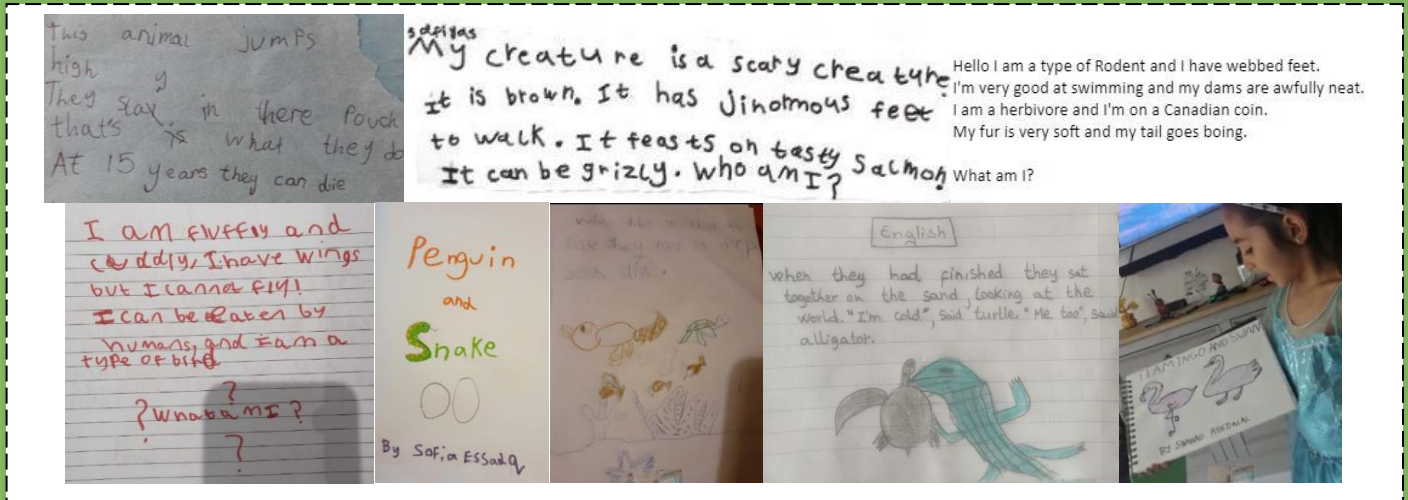 This animal jumps
high
They stay in there Pouch
that's is what they do
At 15 years they can die
safiyas
My creature is a scary creature.
It is brown. It has Jinormous feet
to walk. It feasts on tasty Salmon
It can be grizly. Who am I?
Hello I am a type of Rodent and I have webbed feet.
I'm very good at swimming and my dams are awfully neat.
I am a herbivore and I'm on a Canadian coin.
My fur is very soft and my tail goes boing.
What am I?
I am fluffly and
cuddly, I have wings
but I cannot fly!
I can be eaten by
humans, and I am a
type of bird
?
? What am I ?
?
Penguin
and
Snake
By Sofia Essadq
English
when they had finished they sat
together on the sand, looking at the
world. "I'm cold", said turtle. "Me too", said
alligator.
FLAMINGO AND SWAN
BY